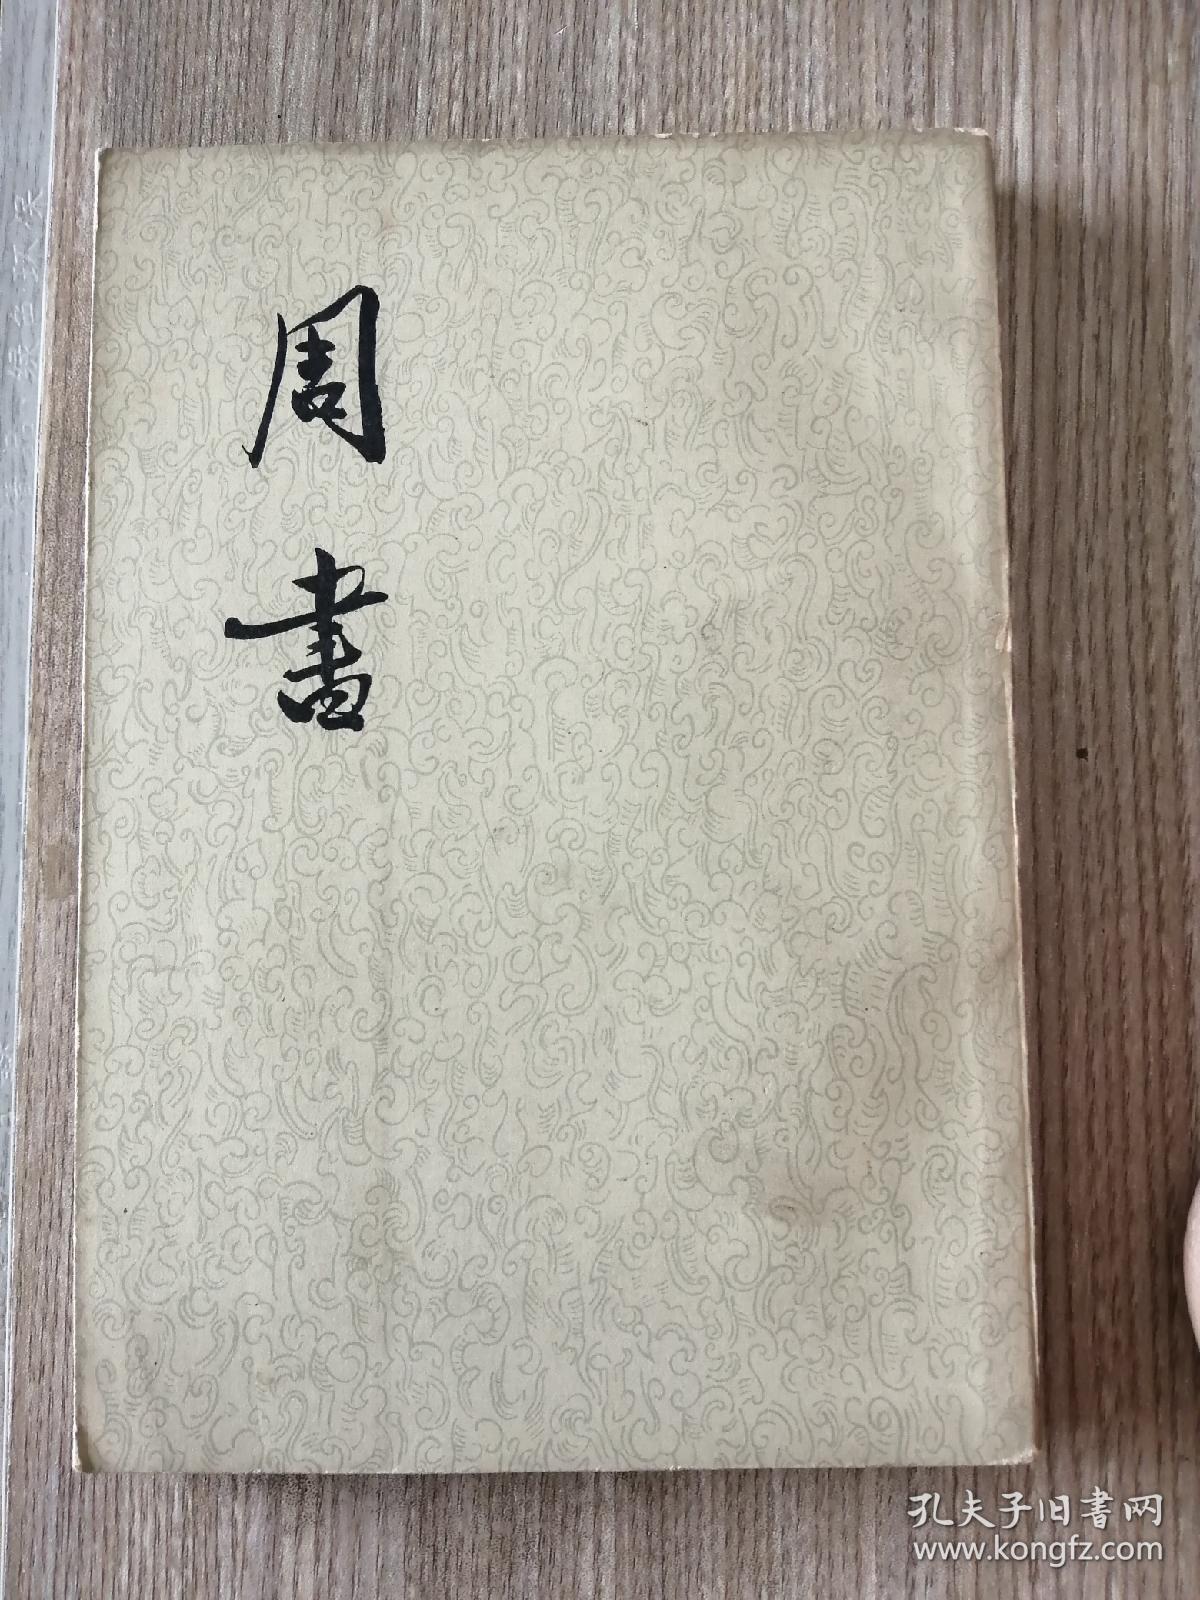 周書
孔夫子旧書网
www.kongfz.com